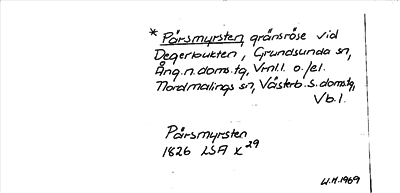 * Pårsmyrsten, gränsröse vid
Degerbukten, Grundsunda sn,
Ång.n.doms.tg, Vrnl.l. o./el.
Nordmalings sn, Västerb.s.domstg,
Vb.l.
Pårsmyrsten
1826 LSA x 29
W.H.1969